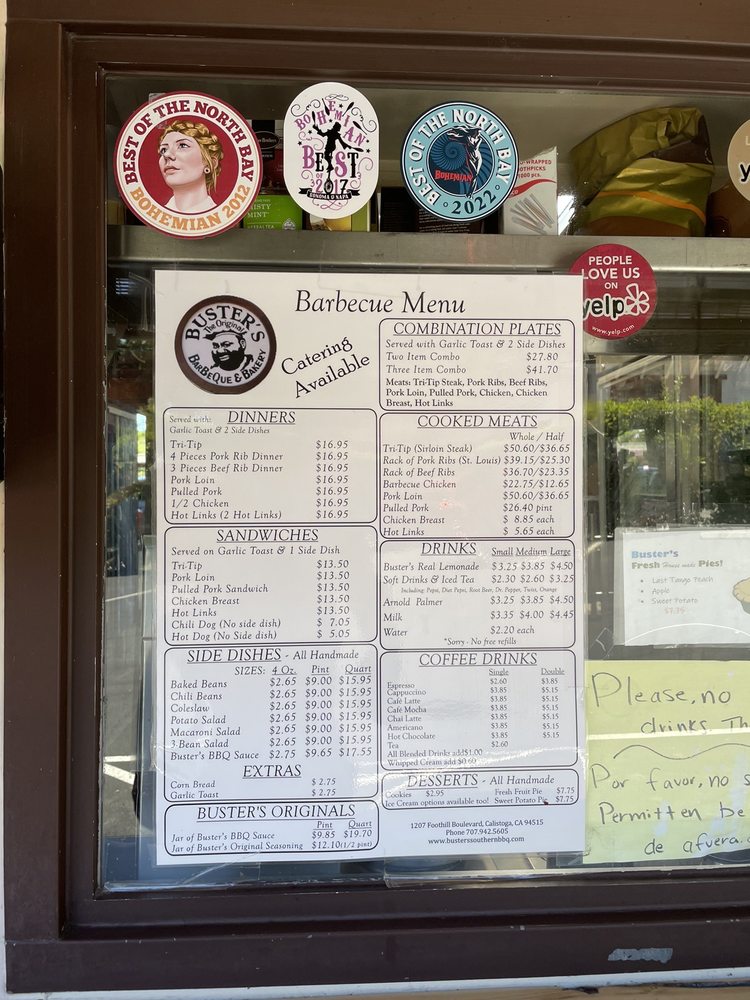 BEST OF THE NORTH BAY
BOHEMIAN 2012
BOHEMIAN
BEST
OF
2017
SONOMA & NAPA
BEST OF THE NORTH BAY
BOHEMIAN
2022
MINT
PEOPLE
LOVE US
ON
yelp
www.yelp.com
BUSTER'S
The Original
BARBEQUE & BAKERY
Barbecue Menu
Catering
Available
COMBINATION PLATES
Served with Garlic Toast & 2 Side Dishes
Two Item Combo $27.80
Three Item Combo $41.70
Meats: Tri-Tip Steak, Pork Ribs, Beef Ribs,
Pork Loin, Pulled Pork, Chicken, Chicken
Breast, Hot Links
Served with: DINNERS
Garlic Toast & 2 Side Dishes
Tri-Tip $16.95
4 Pieces Pork Rib Dinner $16.95
3 Pieces Beef Rib Dinner $16.95
Pork Loin $16.95
Pulled Pork $16.95
1/2 Chicken $16.95
Hot Links (2 Hot Links) $16.95
COOKED MEATS
Whole / Half
Tri-Tip (Sirloin Steak) $50.60/$36.65
Rack of Pork Ribs (St. Louis) $39.15/$25.30
Rack of Beef Ribs $36.70/$23.35
Barbecue Chicken $22.75/$12.65
Pork Loin $50.60/$36.65
Pulled Pork $26.40 pint
Chicken Breast $ 8.85 each
Hot Links $ 5.65 each
SANDWICHES
Served on Garlic Toast & 1 Side Dish
Tri-Tip $13.50
Pork Loin $13.50
Pulled Pork Sandwich $13.50
Chicken Breast $13.50
Hot Links $13.50
Chili Dog (No side dish) $ 7.05
Hot Dog (No Side dish) $ 5.05
DRINKS Small Medium Large
Buster's Real Lemonade $3.25 $3.85 $4.50
Soft Drinks & Iced Tea $2.30 $2.60 $3.25
Including: Pepsi, Diet Pepsi, Root Beer, Dr. Pepper, Twist, Orange
Arnold Palmer $3.25 $3.85 $4.50
Milk $3.35 $4.00 $4.45
Water $2.20 each
*Sorry - No free refills
SIDE DISHES - All Handmade
SIZES: 4 Oz. Pint Quart
Baked Beans $2.65 $9.00 $15.95
Chili Beans $2.65 $9.00 $15.95
Coleslaw $2.65 $9.00 $15.95
Potato Salad $2.65 $9.00 $15.95
Macaroni Salad $2.65 $9.00 $15.95
3 Bean Salad $2.65 $9.00 $15.95
Buster's BBQ Sauce $2.75 $9.65 $17.55
EXTRAS
Corn Bread $ 2.75
Garlic Toast $ 2.75
COFFEE DRINKS
Single Double
Espresso $2.60 $3.85
Cappuccino $3.85 $5.15
Café Latte $3.85 $5.15
Café Mocha $3.85 $5.15
Chai Latte $3.85 $5.15
Americano $3.85 $5.15
Hot Chocolate $3.85 $5.15
Tea $2.60
All Blended Drinks add$1.00
Whipped Cream add $0.60
DESSERTS - All Handmade
Cookies $2.95 Fresh Fruit Pie $7.75
Ice Cream options available too! Sweet Potato Pie $7.75
BUSTER'S ORIGINALS
Pint Quart
Jar of Buster's BBQ Sauce $9.85 $19.70
Jar of Buster's Original Seasoning $12.10(1/2 pint)
1207 Foothill Boulevard, Calistoga, CA 94515
Phone 707.942.5605
www.busterssouthernbbq.com
Buster's
Fresh House made Pies!
• Last Tango Peach
• Apple
• Sweet Potato
$7.75
Please, no
drinks. Th
Por favor, no s
Permitten be
de afuera.